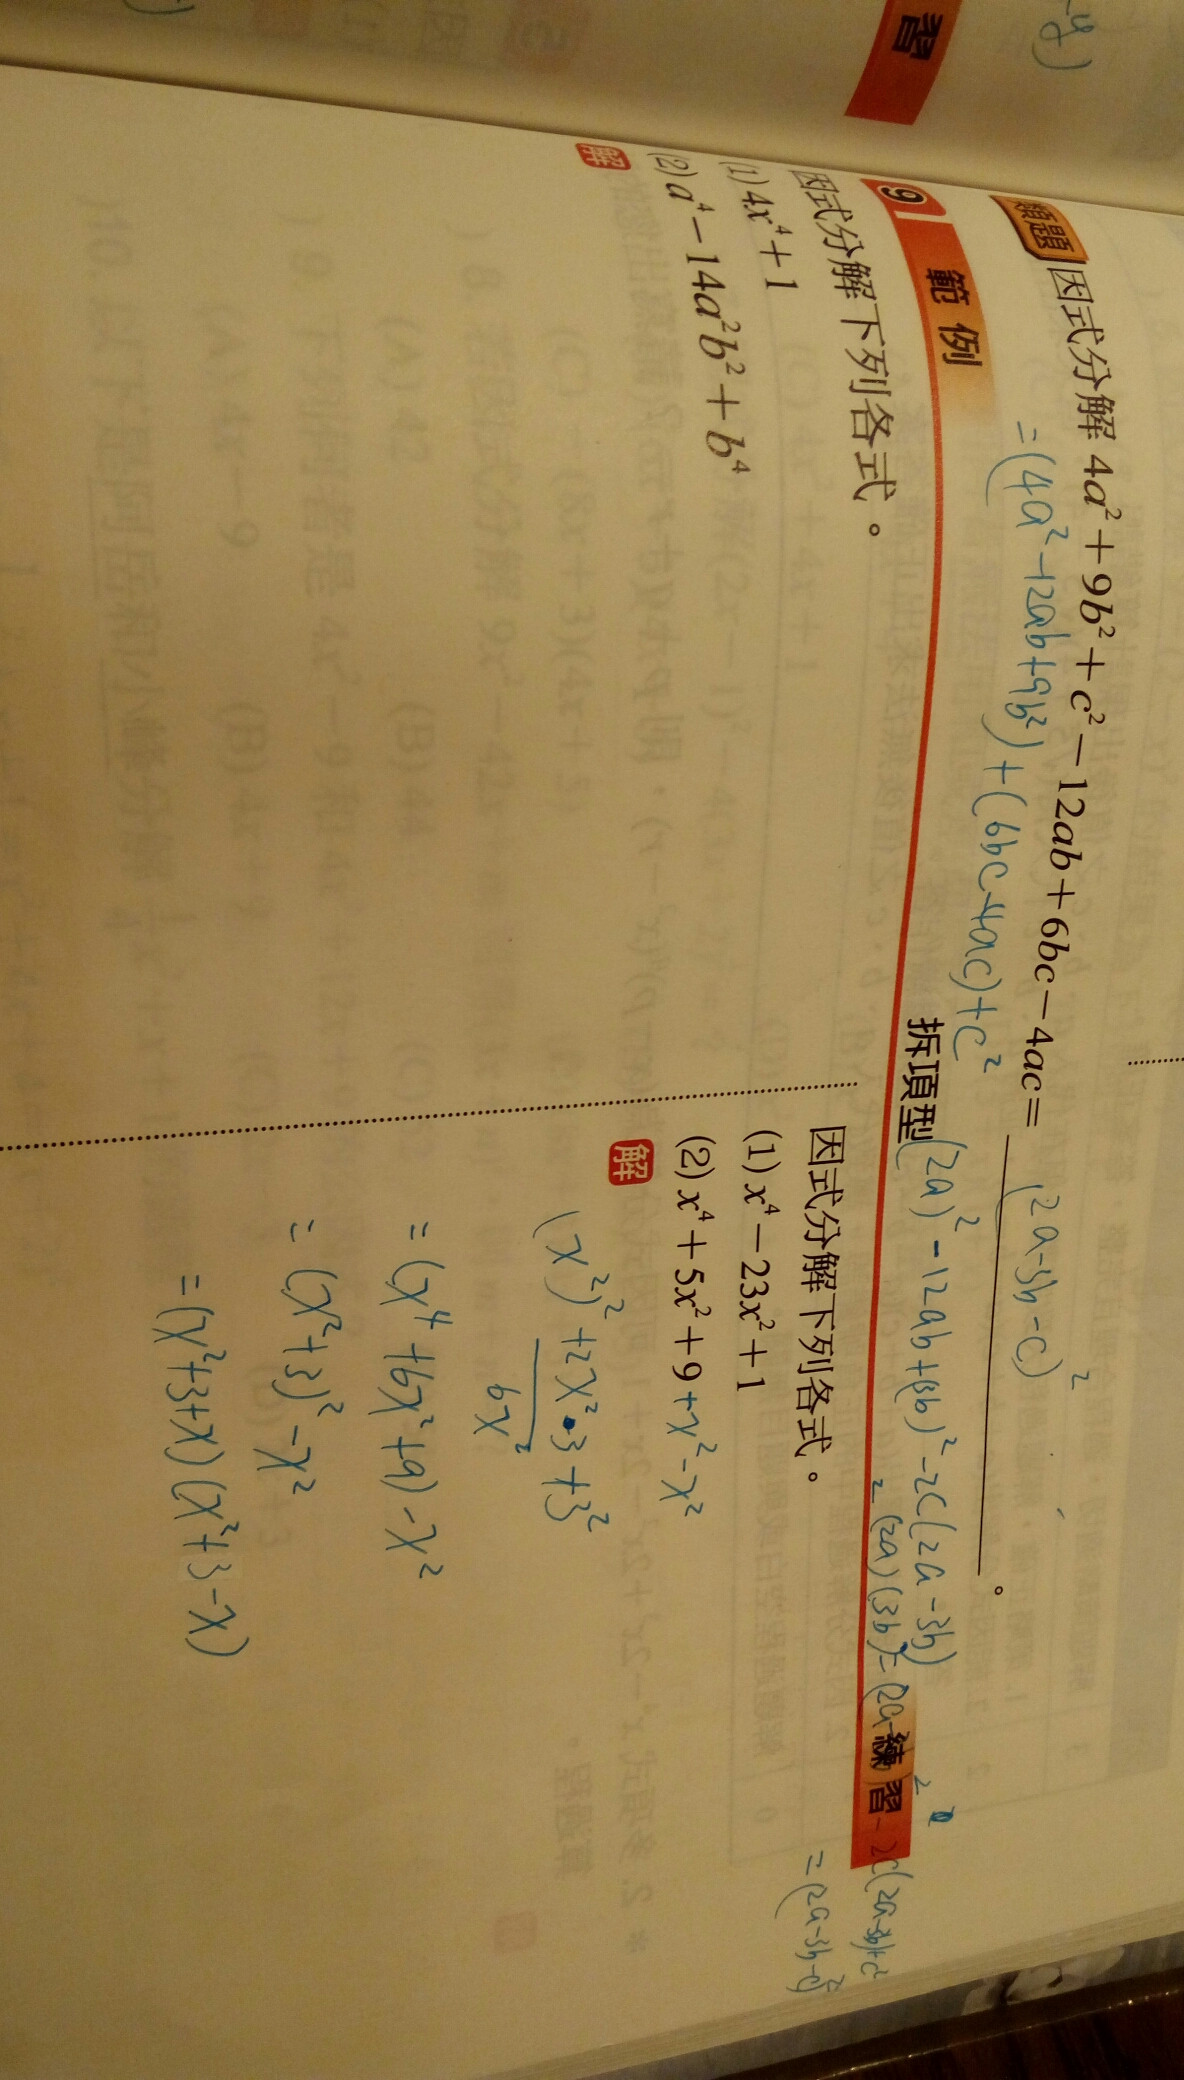 習
-y)
類題 因式分解 4a²+9b²+c²−12ab+6bc−4ac= (2a-3b-c)² 。
=(4a²-12ab+9b²)+(6bc-4ac)+c²
(2a)²-12ab+(3b)²-2c(2a-3b)
2(2a)(3b)=(2a- )²-2c(2a-3b)+c²
=(2a-3b-c)²
9 範例
拆項型
練習
因式分解下列各式。
(1) 4x⁴+1
(2) a⁴−14a²b²+b⁴
解
因式分解下列各式。
(1) x⁴−23x²+1
(2) x⁴+5x²+9+x²-x²
解
(x²)²+2x²·3+3²
6x²
=(x⁴+6x²+9)-x²
=(x²+3)²-x²
=(x²+3+x)(x²+3-x)